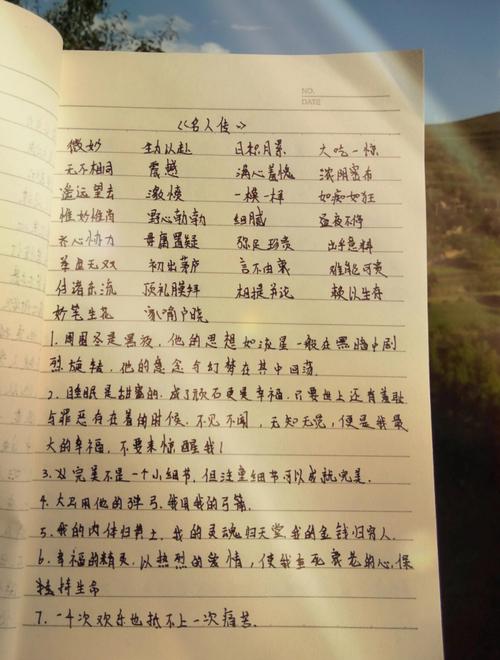 NO.
DATE
《名人传》
微妙 全力以赴 日积月累 大吃一惊
无不相同 震撼 满心羞愧 浓阴密布
遥远望去 激愤 一模一样 如痴如狂
惟妙惟肖 野心勃勃 细腻 昼夜不停
齐心协力 毋庸置疑 弥足珍贵 出乎意料
举世无双 初出茅庐 言不由衷 难能可贵
付诸东流 顶礼膜拜 相提并论 赖以生存
妙笔生花 家喻户晓
1. 周围尽是黑夜，他的思想如流星一般在黑暗中剧
烈旋转，他的意念奇幻梦在其中回荡
2. 睡眠是甜蜜的，成了顽石更是幸福，只要世上还有羞耻
与罪恶存在着的时候，不见不闻，无知无觉，便是我最
大的幸福，不要来惊醒我！
3. 义完美不是一个小细节，但注重细节可以成就完美.
4. 大卫用他的弹弓，我用我的弓箭.
5. 我的肉体归黄土，我的灵魂归天堂，我的金钱归穷人.
6. 幸福的精灵，以热烈的爱情，使我垂死衰老的心，保
持生命
7. 一千次欢乐也抵不上一次痛苦.